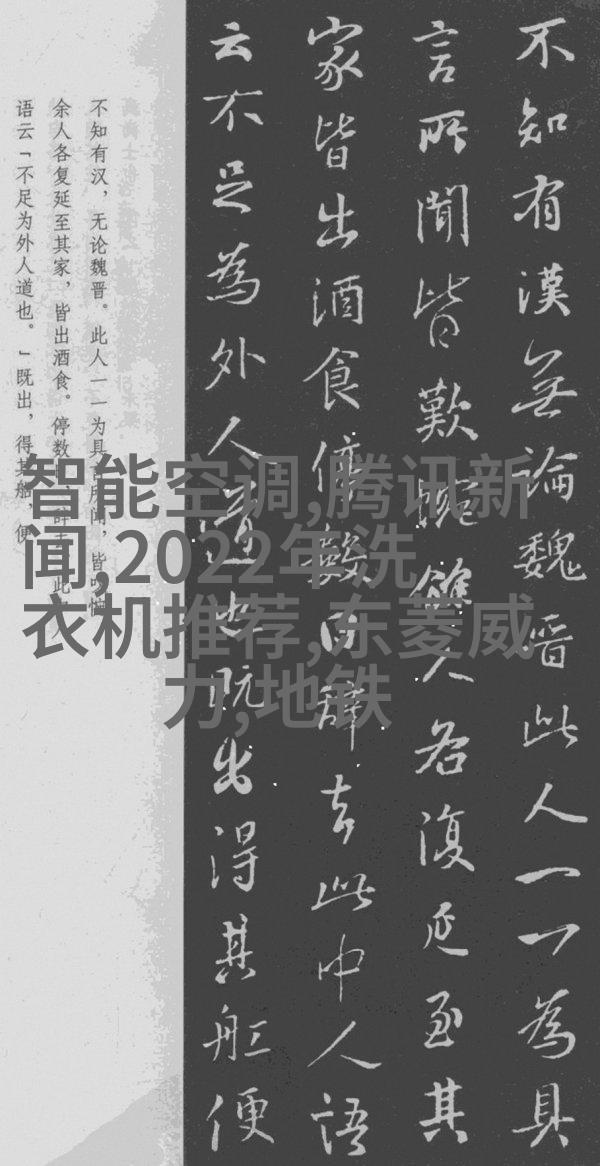 不知有漢無論魏晋此人一一為具
言所聞皆歎惋餘人各復延至其
家皆出酒食停數日辭去此中人語
云不足為外人道也既出得其船便
不知有汉，无论魏晋。此人一一为具言所闻，皆叹惋
余人各复延至其家，皆出酒食。停数日，辞去。此中人
语云「不足为外人道也。」既出，得其船，便
智能空调,腾讯新
闻,2022年洗
衣机推荐,东菱威
力,地铁